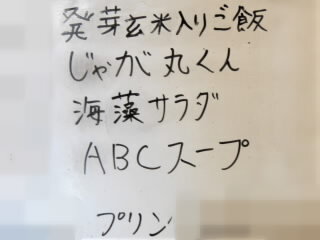 発芽玄米入りご飯
じゃが丸くん
海藻サラダ
ABCスープ
プリン